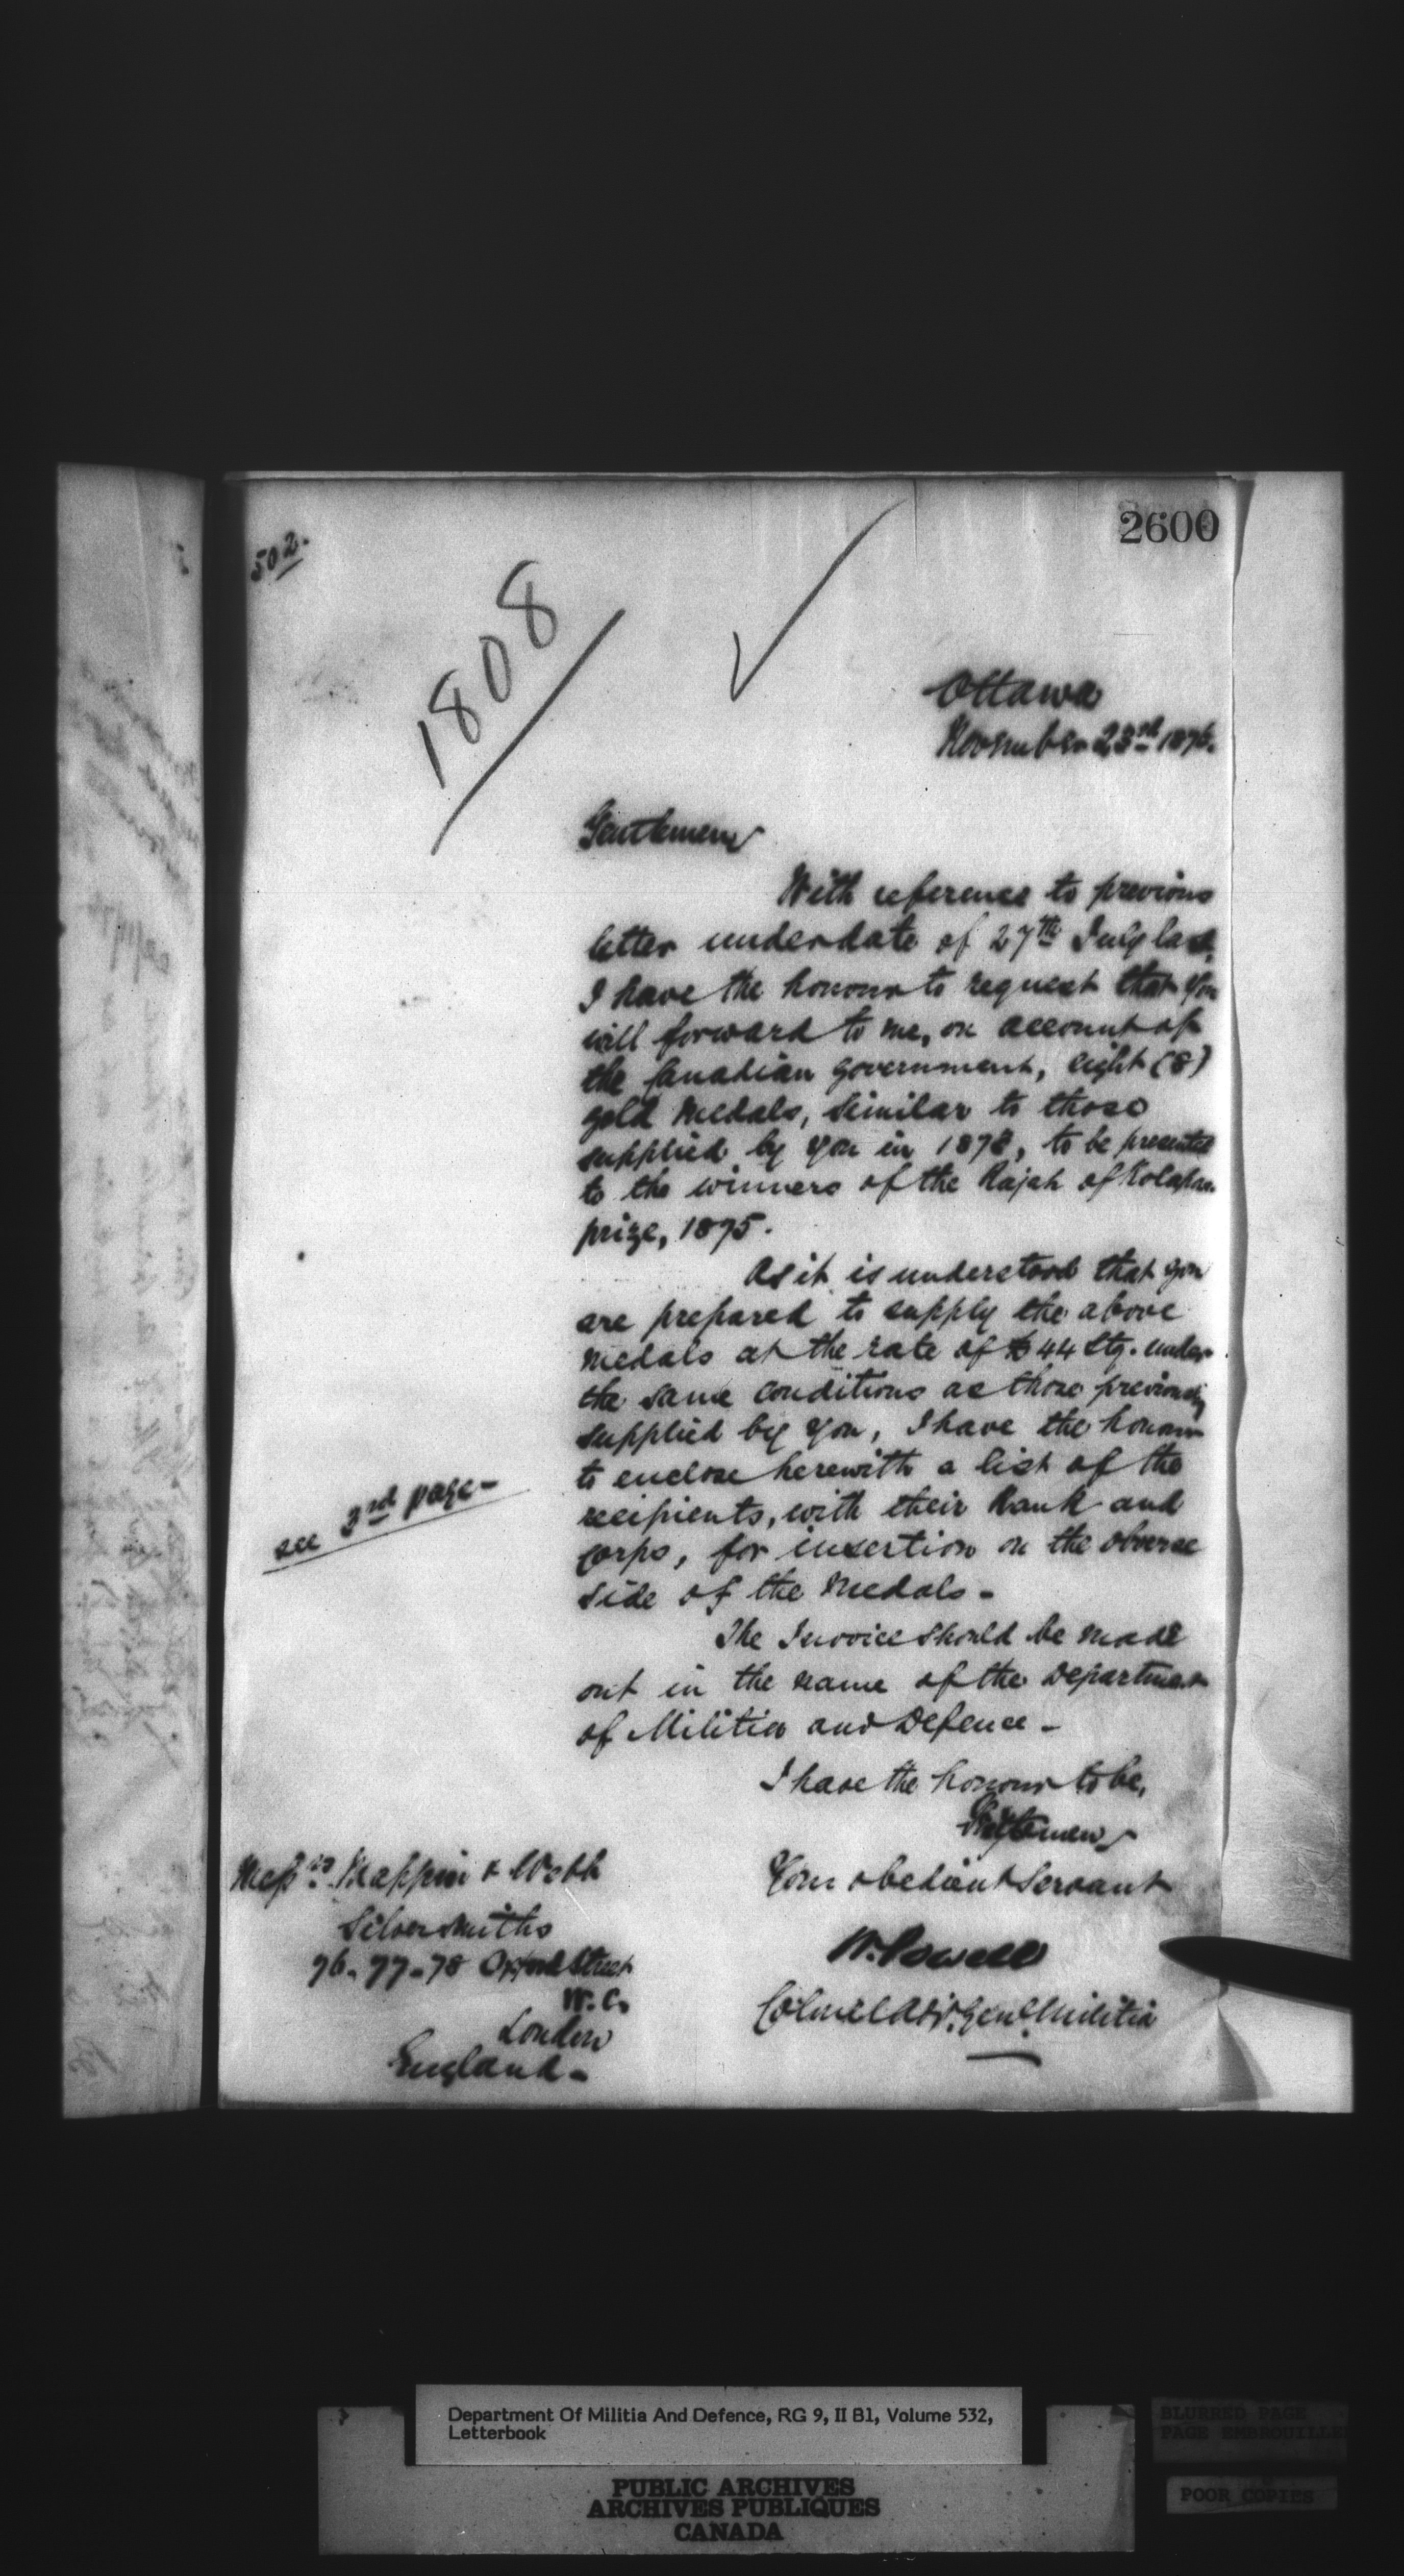 2600
502.
1808
Ottawa
November 23rd 1875.
Gentlemen
With reference to previous
letter under date of 27th July last,
I have the honour to request that you
will forward to me, on account of
the Canadian Government, eight (8)
gold medals, similar to those
supplied by you in 1872, to be presented
to the winners of the Rajah of Kolapore
prize, 1875.
As it is understood that you
are prepared to supply the above
medals at the rate of £44 Stg. under
the same conditions as those previously
supplied by you, I have the honour
to enclose herewith a list of the
recipients, with their Rank and
Corps, for insertion on the obverse
side of the medals -
see 3rd page -
The Invoice should be made
out in the name of the Department
of Militia and Defence -
I have the honour to be,
Gentlemen
Your obedient Servant
W. Powell
Colonel Adjt. Genl. Militia
Messrs. Mappin & Webb
Silversmiths
76-77-78 Oxford Street
W.C.
London
England -
Department Of Militia And Defence, RG 9, II B1, Volume 532,
Letterbook
PUBLIC ARCHIVES
ARCHIVES PUBLIQUES
CANADA
BLURRED PAGE
PAGE EMBROUILLE
POOR COPIES